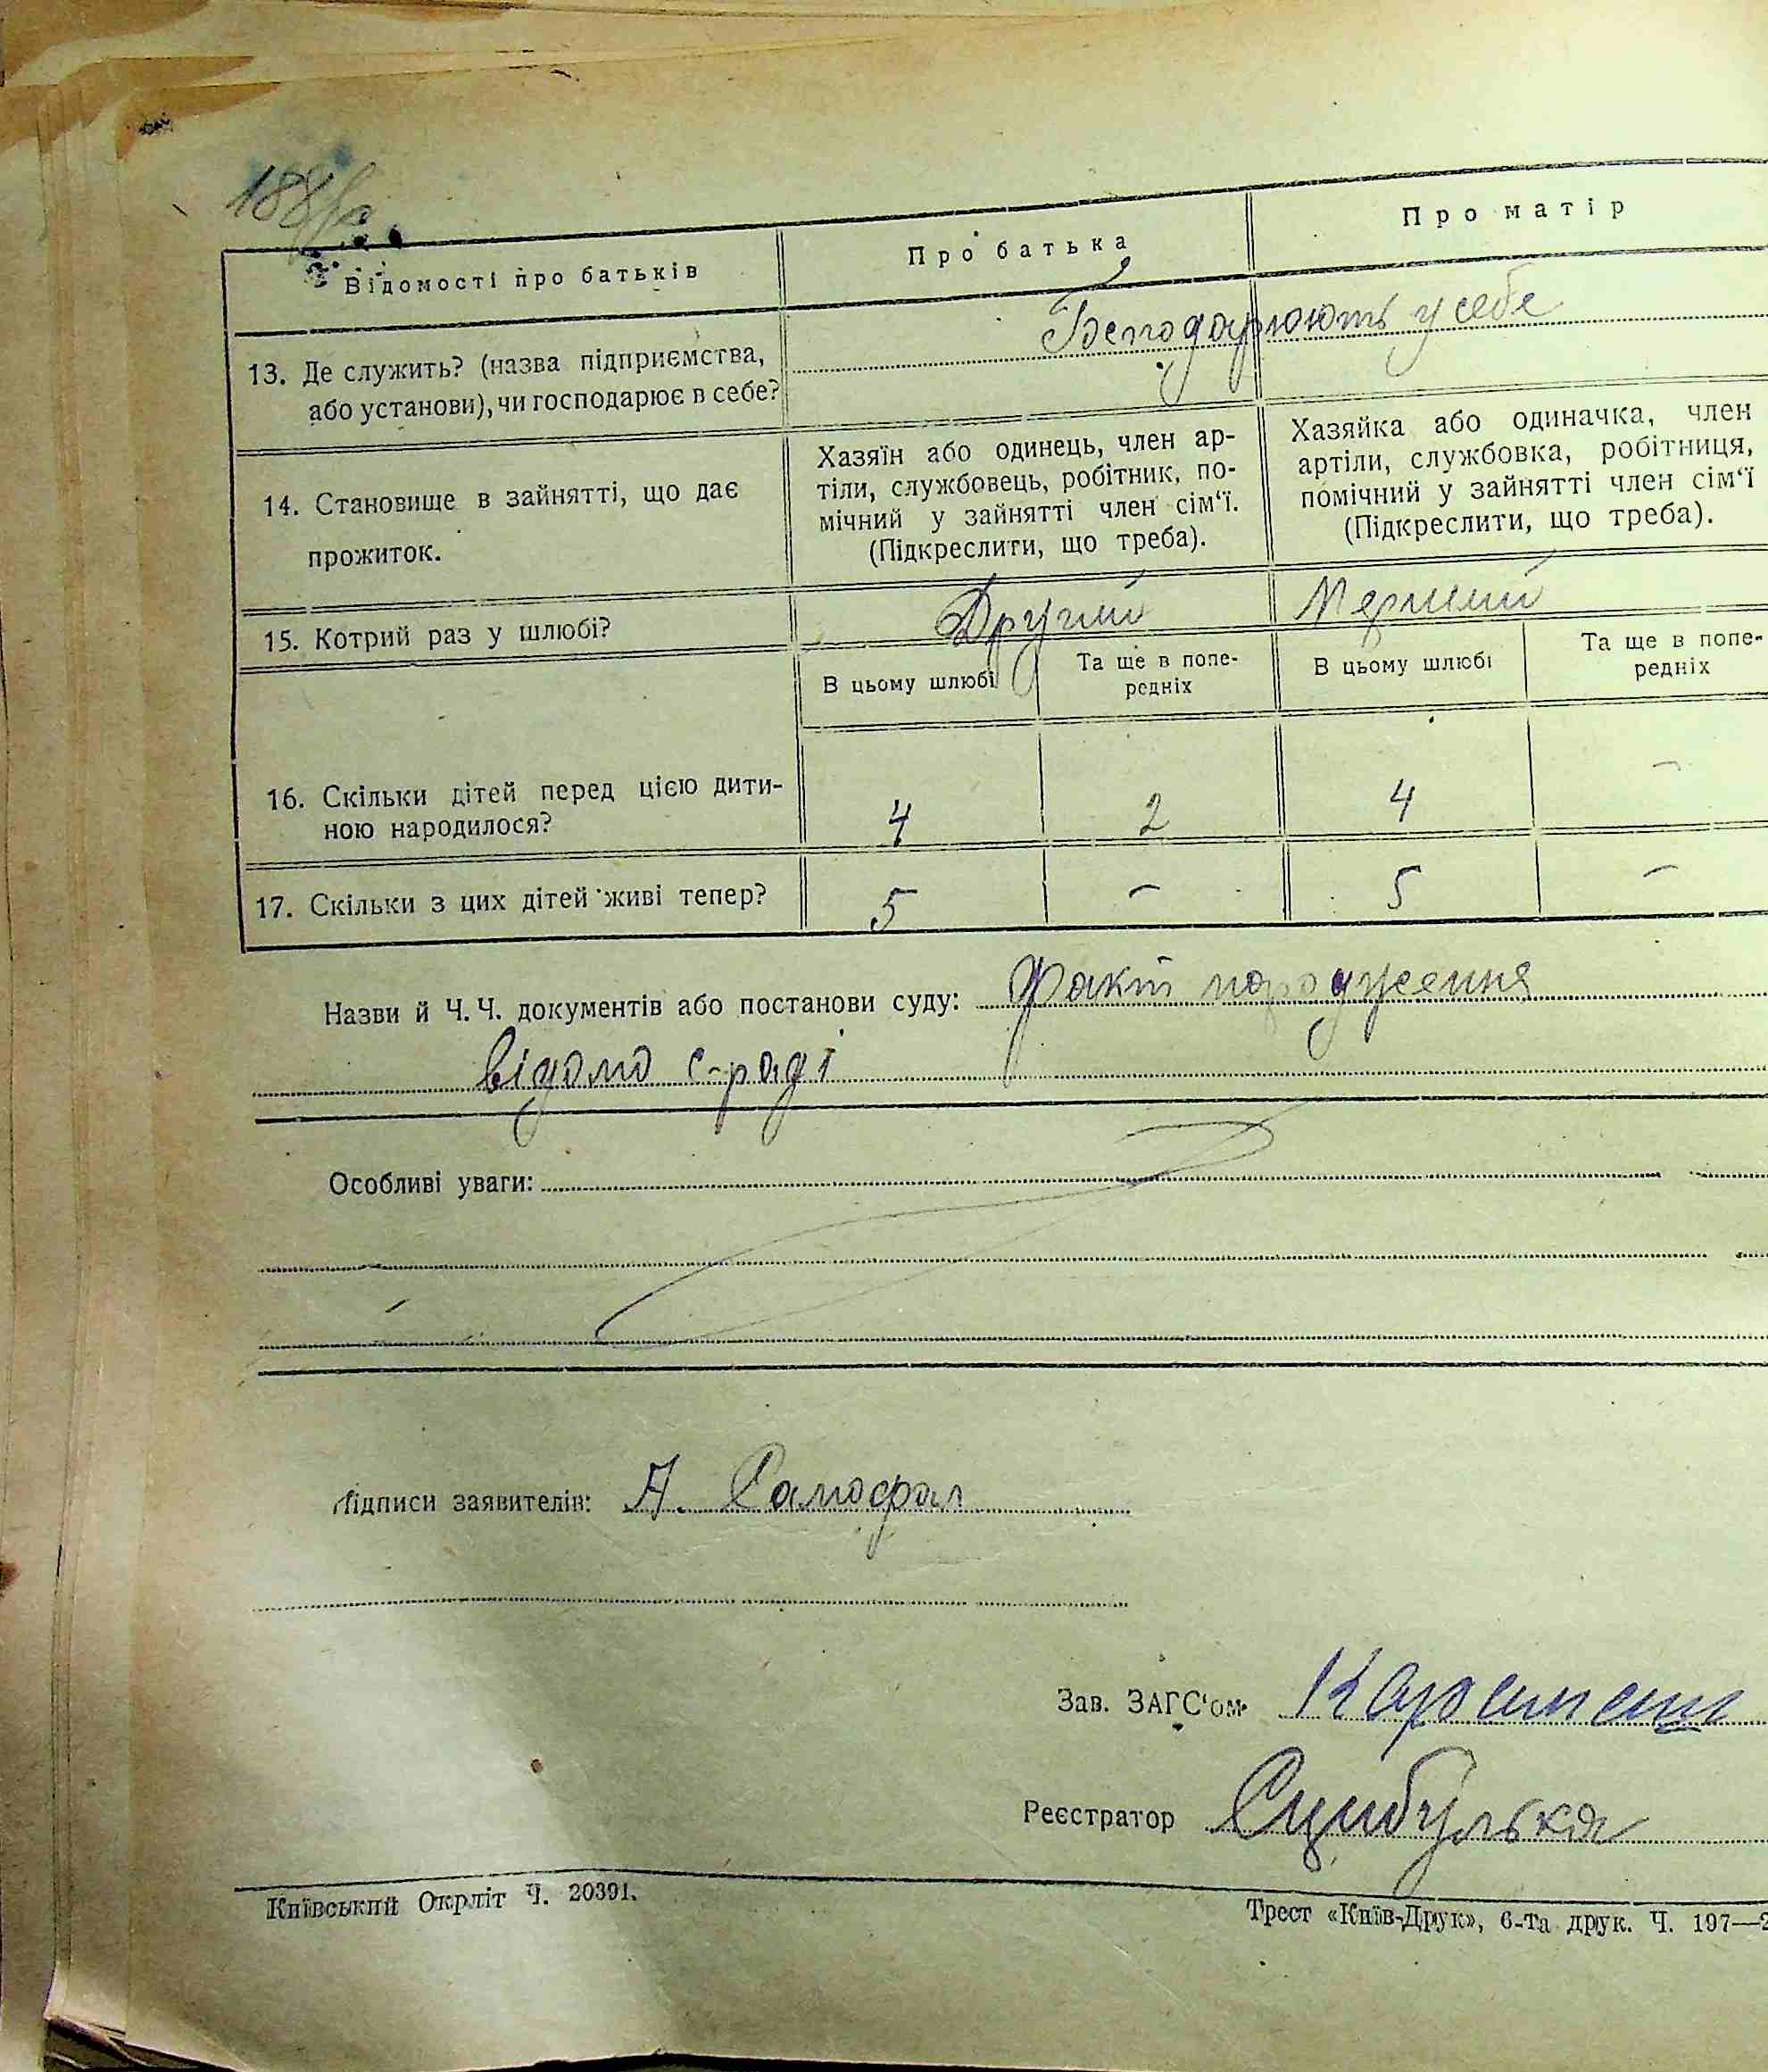 188
Відомості про батьків
Про батька
Про матір
13. Де служить? (назва підприємства,
або установи), чи господарює в себе?
у себе
14. Становище в зайнятті, що дає
прожиток.
Хазяїн або одинець, член ар-
тіли, службовець, робітник, по-
мічний у зайнятті член сім‘ї.
(Підкреслити, що треба).
Хазяйка або одиначка, член
артіли, службовка, робітниця,
помічний у зайнятті член сім‘ї
(Підкреслити, що треба).
15. Котрий раз у шлюбі?
Другий
Перший
В цьому шлюбі
Та ще в попе-
редніх
В цьому шлюбі
Та ще в попе-
редніх
16. Скільки дітей перед цією дити-
ною народилося?
4
2
4
-
17. Скільки з цих дітей живі тепер?
5
-
5
-
Назви й Ч. Ч. документів або постанови суду: Факт народження
відомо с-раді
Особливі уваги:
Підписи заявителів: А. Самофал
Зав. ЗАГС‘ом
Реєстратор
Київський Окрліт Ч. 20391.
Трест «Київ-Друк», 6-та друк. Ч. 197—2